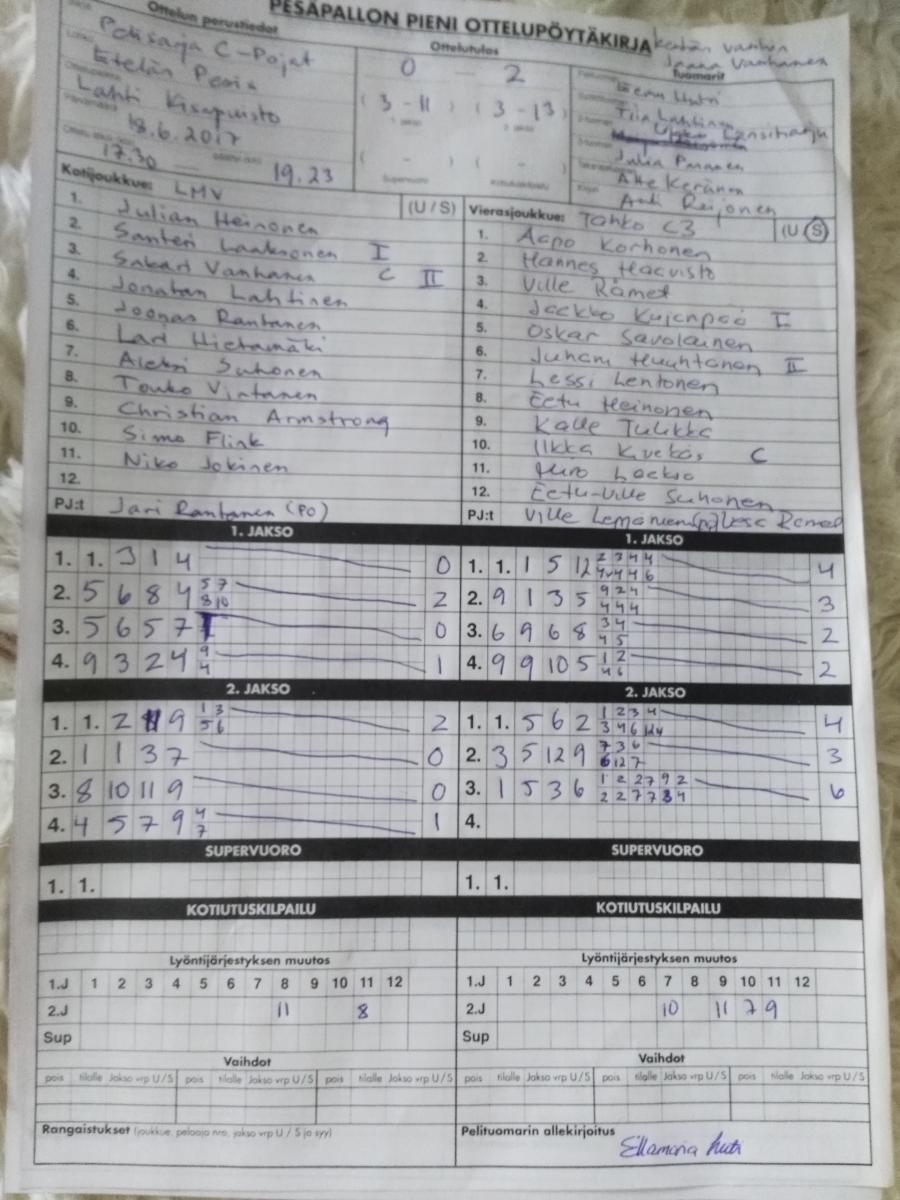 PESÄPALLON PIENI OTTELUPÖYTÄKIRJA
Ottelun perustiedot
Ottelutulos
Tuomarit
Jaana Vanhanen
C-Pojat
Etelän
Lahti Kisapuisto
18.6.2017
17.30 19.23
0 - 2
(3 - 11) (3 - 13)
( - ) ( - )
Supervuoro
Tiia Lahtinen
Länsiharju
Julia
Atte Keränen
Reijonen
Kotijoukkue: LMV (U / S)
1. Julian Heinonen
2. Santeri Laaksonen I
3. Sakari Vanhanen C II
4. Jonatan Lahtinen
5. Joonas Rantanen
6. Lari Hietamäki
7. Aleksi Suhonen
8. Touko Virtanen
9. Christian Armstrong
10. Simo Flink
11. Niko Jokinen
12.
PJ:t Jari Rantanen (PO)
Vierasjoukkue: Tahko C3 (U S)
1. Aapo Korhonen
2. Hannes Haavisto
3. Ville Rämet
4. Jaakko Kujanpää I
5. Oskar Savolainen
6. Juhani Huuhtanen II
7. Lassi Lentonen
8. Eetu Heinonen
9. Kalle Tulikka
10. Ilkka C
11.
12. Eetu-Ville Suhonen
PJ:t Ville
1. JAKSO
1. 1. 3 1 4 0
2. 5 6 8 4 5 7 8 10 2
3. 5 6 5 7 0
4. 9 3 2 4 9 4 1
1. JAKSO
1. 1. 1 5 12 2 3 4 4 4 4 4 6 4
2. 9 1 3 5 9 2 4 4 4 4 3
3. 6 9 6 8 3 4 4 5 2
4. 9 9 10 5 1 2 4 6 2
2. JAKSO
1. 1. 2 9 1 3 5 6 2
2. 1 1 3 7 0
3. 8 10 11 9 0
4. 4 5 7 9 4 7 1
2. JAKSO
1. 1. 5 6 2 1 2 3 4 3 4 6 4
2. 3 5 12 9 7 3 6 6 12 7 3
3. 1 5 3 6 1 2 2 7 9 2 2 2 7 7 3 4 6
4.
SUPERVUORO
1. 1.
SUPERVUORO
1. 1.
KOTIUTUSKILPAILU
KOTIUTUSKILPAILU
Lyöntijärjestyksen muutos
1.J 1 2 3 4 5 6 7 8 9 10 11 12
2.J 11 8
Sup
Lyöntijärjestyksen muutos
1.J 1 2 3 4 5 6 7 8 9 10 11 12
2.J 10 11 7 9
Sup
Vaihdot
pois tilalle Jakso vrp U / S pois tilalle Jakso vrp U / S pois tilalle Jakso vrp U / S
Vaihdot
pois tilalle Jakso vrp U / S pois tilalle Jakso vrp U / S pois tilalle Jakso vrp U / S
Rangaistukset (joukkue, pelaaja nro, jakso vrp U / S ja syy)
Pelituomarin allekirjoitus
Ellamaria